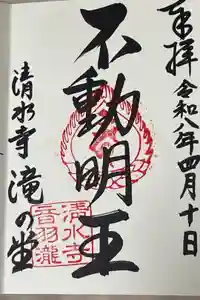 奉拝 令和八年四月十日
不動明王
清水寺 滝の堂
清水寺
音羽瀧